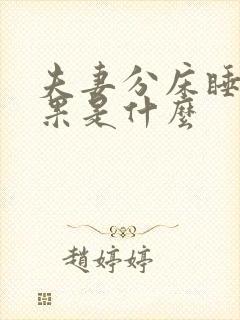 夫妻分床睡
果是什麼
趙婷婷